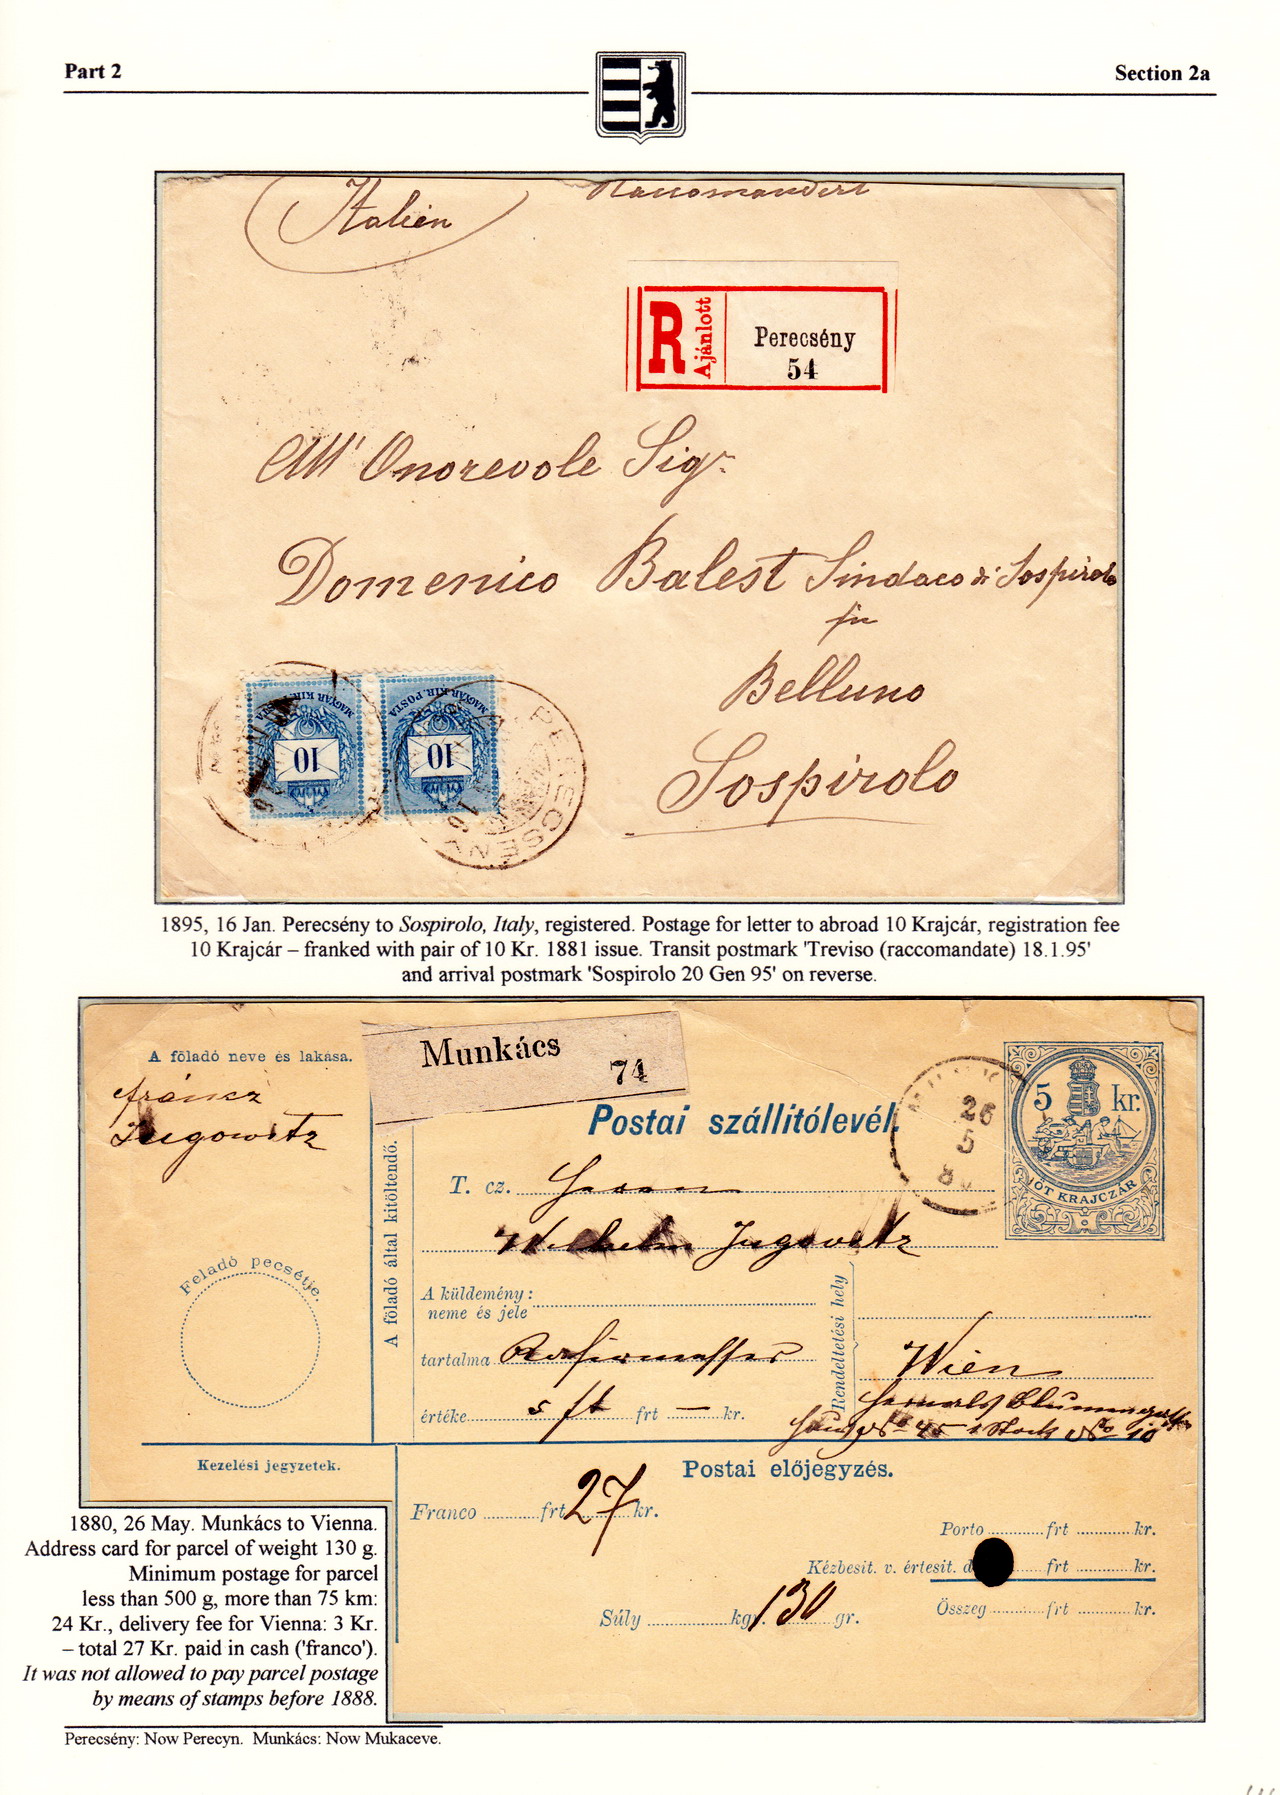 Part 2
Section 2a
Italien
Raccomandert
R
Ajánlott
Perecsény
54
All' Onorevole Sigr.
Domenico Balest Sindaco di Sospirolo
Belluno
Sospirolo
MAGYAR KIR. POSTA
10
MAGYAR KIR. POSTA
10
PERECSENY
1895, 16 Jan. Perecsény to Sospirolo, Italy, registered. Postage for letter to abroad 10 Krajcár, registration fee
10 Krajcár – franked with pair of 10 Kr. 1881 issue. Transit postmark 'Treviso (raccomandate) 18.1.95'
and arrival postmark 'Sospirolo 20 Gen 95' on reverse.
A föladó neve és lakása.
Munkács
74
Postai szállitólevél.
26
5
5 kr.
ÖT KRAJCZÁR
Jugowitz
A föladó által kitöltendő.
T. cz.
Wilhelm Jugovitz
Feladó pecsétje.
A küldemény:
neme és jele
tartalma
értéke 5 ft frt — kr.
Rendeltetési hely
Wien
Kezelési jegyzetek.
Postai előjegyzés.
Franco frt 27 kr.
Porto frt kr.
Kézbesit. v. értesit. d frt kr.
Súly kgr. 130 gr.
Összeg frt kr.
1880, 26 May. Munkács to Vienna.
Address card for parcel of weight 130 g.
Minimum postage for parcel
less than 500 g, more than 75 km:
24 Kr., delivery fee for Vienna: 3 Kr.
– total 27 Kr. paid in cash ('franco').
It was not allowed to pay parcel postage
by means of stamps before 1888.
Perecsény: Now Perecyn. Munkács: Now Mukaceve.